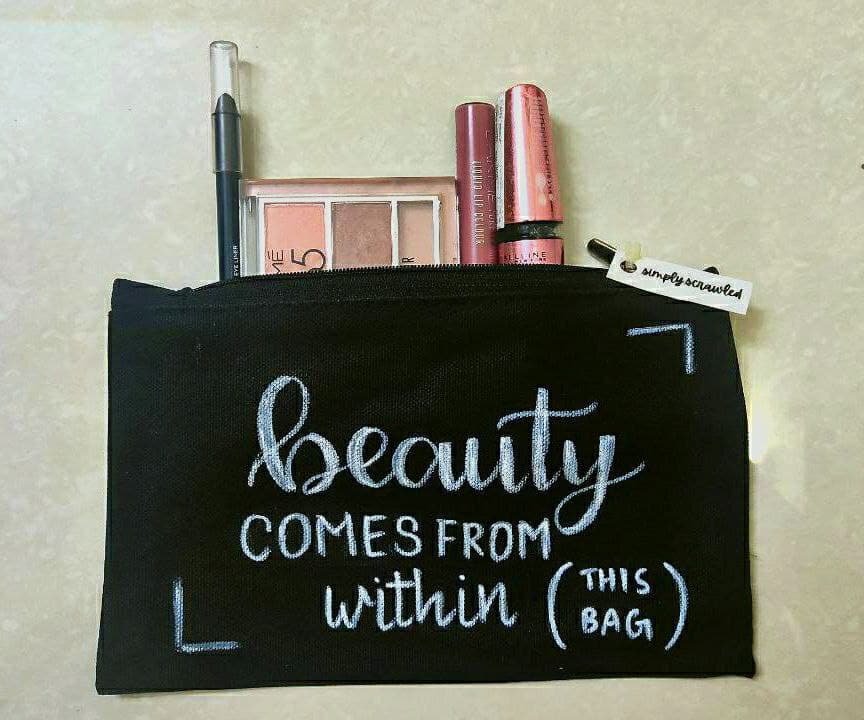 EYE LINER
5
LIQUID LIP COLOUR
simplyscrawled
beauty
COMES FROM
within (THIS
BAG)